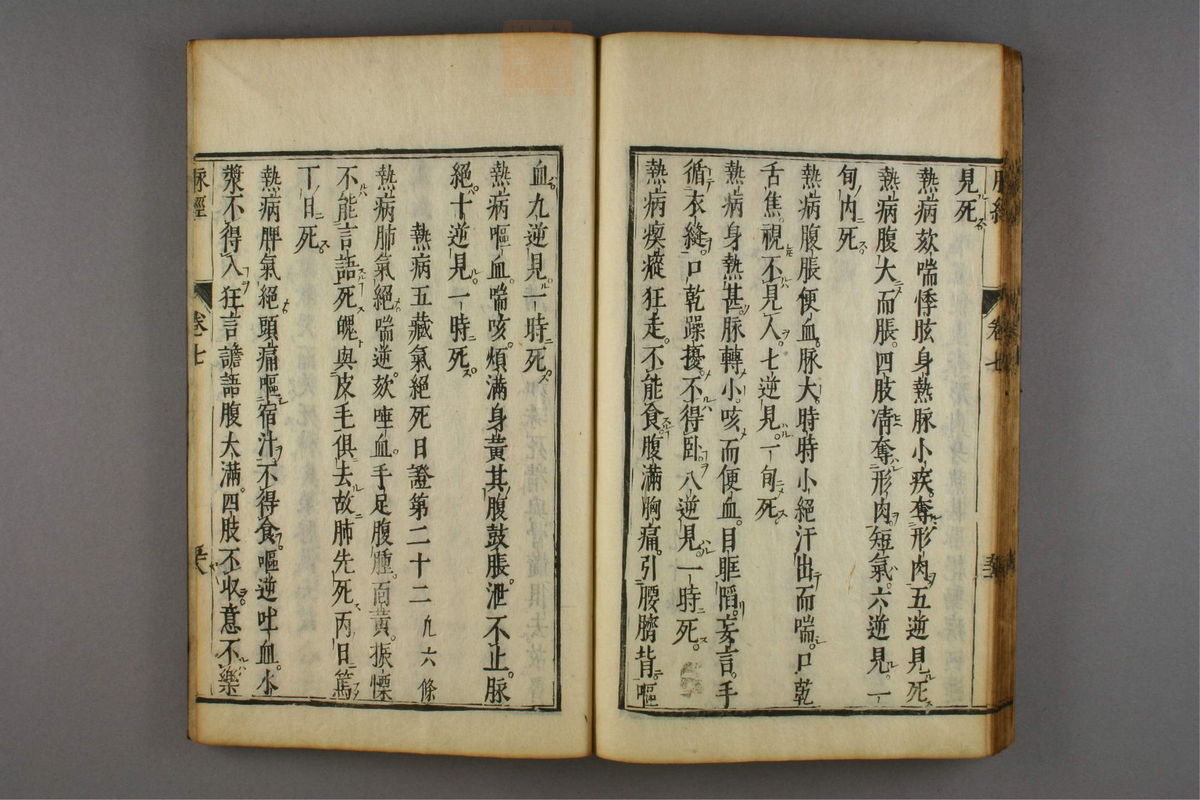 見死
熱病欬喘悸眩身熱脉小疾奪形肉五逆見死
熱病腹大而脹四肢凊奪形肉短氣六逆見一
旬內死
熱病腹脹便血脉大時時小絕汗出而喘口乾
舌焦視不見人七逆見一旬死
熱病身熱甚脉轉小咳而便血目眶䧟妄言手
循衣縫口乾躁擾不得臥八逆見一時死
熱病瘈瘲狂走不能食腹滿胸痛引腰臍背嘔
血九逆見一時死
熱病嘔血喘咳煩滿身黃其腹鼓脹泄不止脉
絕十逆見一時死
熱病五藏氣絕死日證第二十二 凡六條
熱病肺氣絕喘逆欬唾血手足腹腫面黃振慄
不能言語死魄與皮毛俱去故肺先死丙日篤
丁日死
熱病脾氣絕頭痛嘔宿汁不得食嘔逆吐血水
漿不得入狂言譫語腹大滿四肢不收意不樂
脉經
卷七